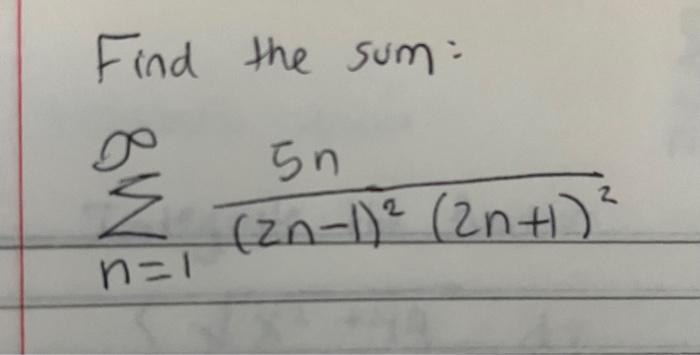 Find the sum:
∞
∑ 5n / (2n-1)² (2n+1)²
n=1